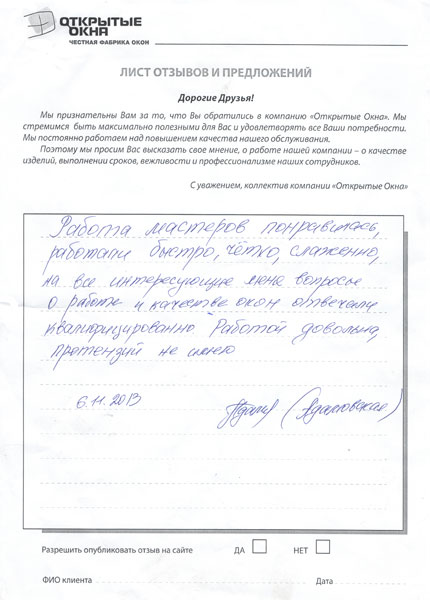 ОТКРЫТЫЕ
ОКНА
ЧЕСТНАЯ ФАБРИКА ОКОН
ЛИСТ ОТЗЫВОВ И ПРЕДЛОЖЕНИЙ
Дорогие Друзья!
Мы признательны Вам за то, что Вы обратились в компанию «Открытые Окна». Мы
стремимся быть максимально полезными для Вас и удовлетворять все Ваши потребности.
Мы постоянно работаем над повышением качества нашего обслуживания.
Поэтому мы просим Вас высказать свое мнение, о работе нашей компании – о качестве
изделий, выполнении сроков, вежливости и профессионализме наших сотрудников.
С уважением, коллектив компании «Открытые Окна»
Работа мастеров понравилась,
работали быстро, чётко, слаженно,
на все интересующие меня вопросы
о работе и качестве окон отвечали
квалифицированно Работой довольна,
претензий не имею
6.11.2013 (Адамовская)
Разрешить опубликовать отзыв на сайте ДА НЕТ
ФИО клиента Дата